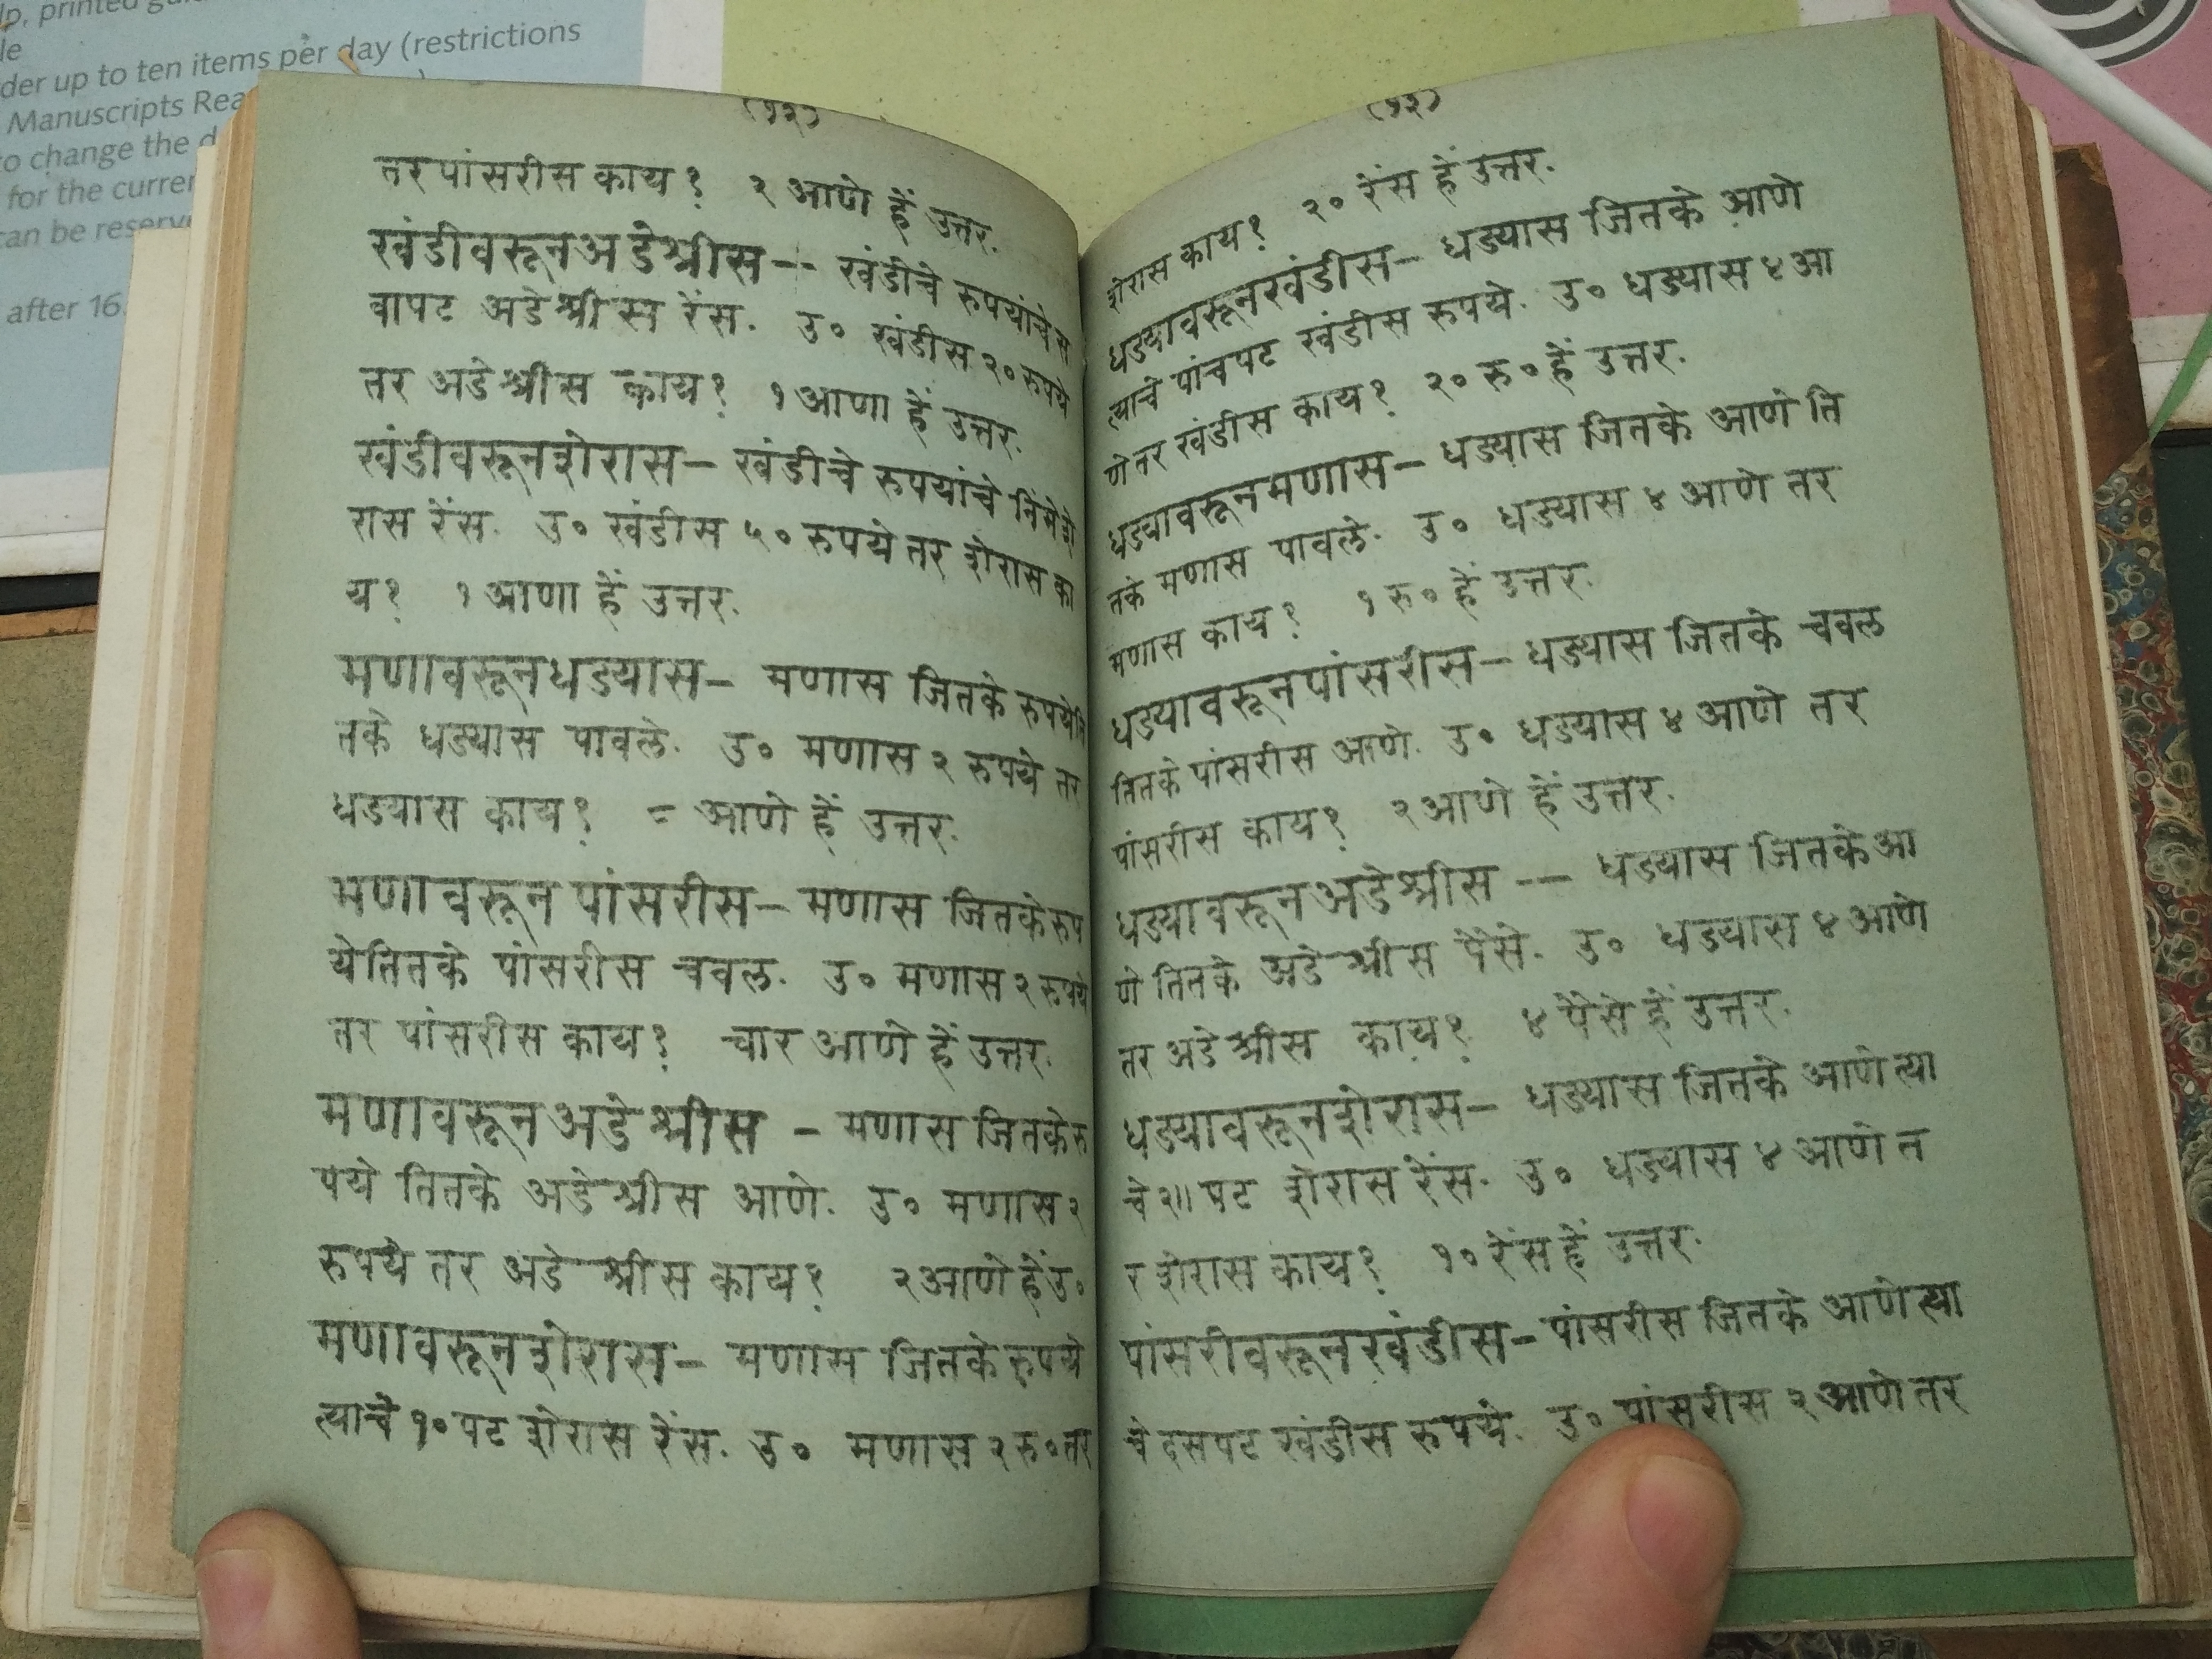 lp, printed
le
der up to ten items per day (restrictions
Manuscripts Rea
to change the d
for the curren
can be reserv
after 16.
(१२)
तर पांसरीस काय? २ आणे हें उत्तर.
खंडीवरूनअडेश्रीस-- खंडीचे रुपयांचे स
वापट अडेश्रीस रेंस. उ० खंडीस २० रुपये
तर अडेश्रीस काय? १ आणा हें उत्तर.
खंडीवरूनशेरास- खंडीचे रुपयांचे निमे शे
रास रेंस. उ० खंडीस ५० रुपये तर शेरास का
य? १ आणा हें उत्तर.
मणावरूनधड्यास- मणास जितके रुपये ति
तके धड्यास पावले. उ० मणास २ रुपये तर
धड्यास काय? = आणे हें उत्तर.
मणावरून पांसरीस- मणास जितके रुप
ये तितके पांसरीस चवल. उ० मणास २ रुपये
तर पांसरीस काय? चार आणे हें उत्तर.
मणावरूनअडेश्रीस - मणास जितके रु
पये तितके अडेश्रीस आणे. उ० मणास २
रुपये तर अडेश्रीस काय? २ आणे हें उ०
मणावरूनशेरास- मणास जितके रुपये
त्याचे १० पट शेरास रेंस. उ० मणास २ रु० तर
(१३)
शेरास काय? २० रेंस हें उत्तर.
धड्यावरूनखंडीस- धड्यास जितके आणे
त्याचे पांचपट खंडीस रुपये. उ० धड्यास ४ आ
णे तर खंडीस काय? २० रु० हें उत्तर.
धड्यावरूनमणास- धड्यास जितके आणे ति
तके मणास पावले. उ० धड्यास ४ आणे तर
मणास काय? १ रु० हें उत्तर.
धड्यावरूनपांसरीस- धड्यास जितके चवल
तितके पांसरीस आणे. उ० धड्यास ४ आणे तर
पांसरीस काय? २ आणे हें उत्तर.
धड्यावरूनअडेश्रीस -- धड्यास जितके आ
णे तितके अडेश्रीस पैसे. उ० धड्यास ४ आणे
तर अडेश्रीस काय? ४ पैसे हें उत्तर.
धड्यावरूनशेरास- धड्यास जितके आणे त्या
चे २॥ पट शेरास रेंस. उ० धड्यास ४ आणे त
र शेरास काय? १० रेंस हें उत्तर.
पांसरीवरूनखंडीस- पांसरीस जितके आणे त्या
चे दसपट खंडीस रुपये. उ० पांसरीस २ आणे तर